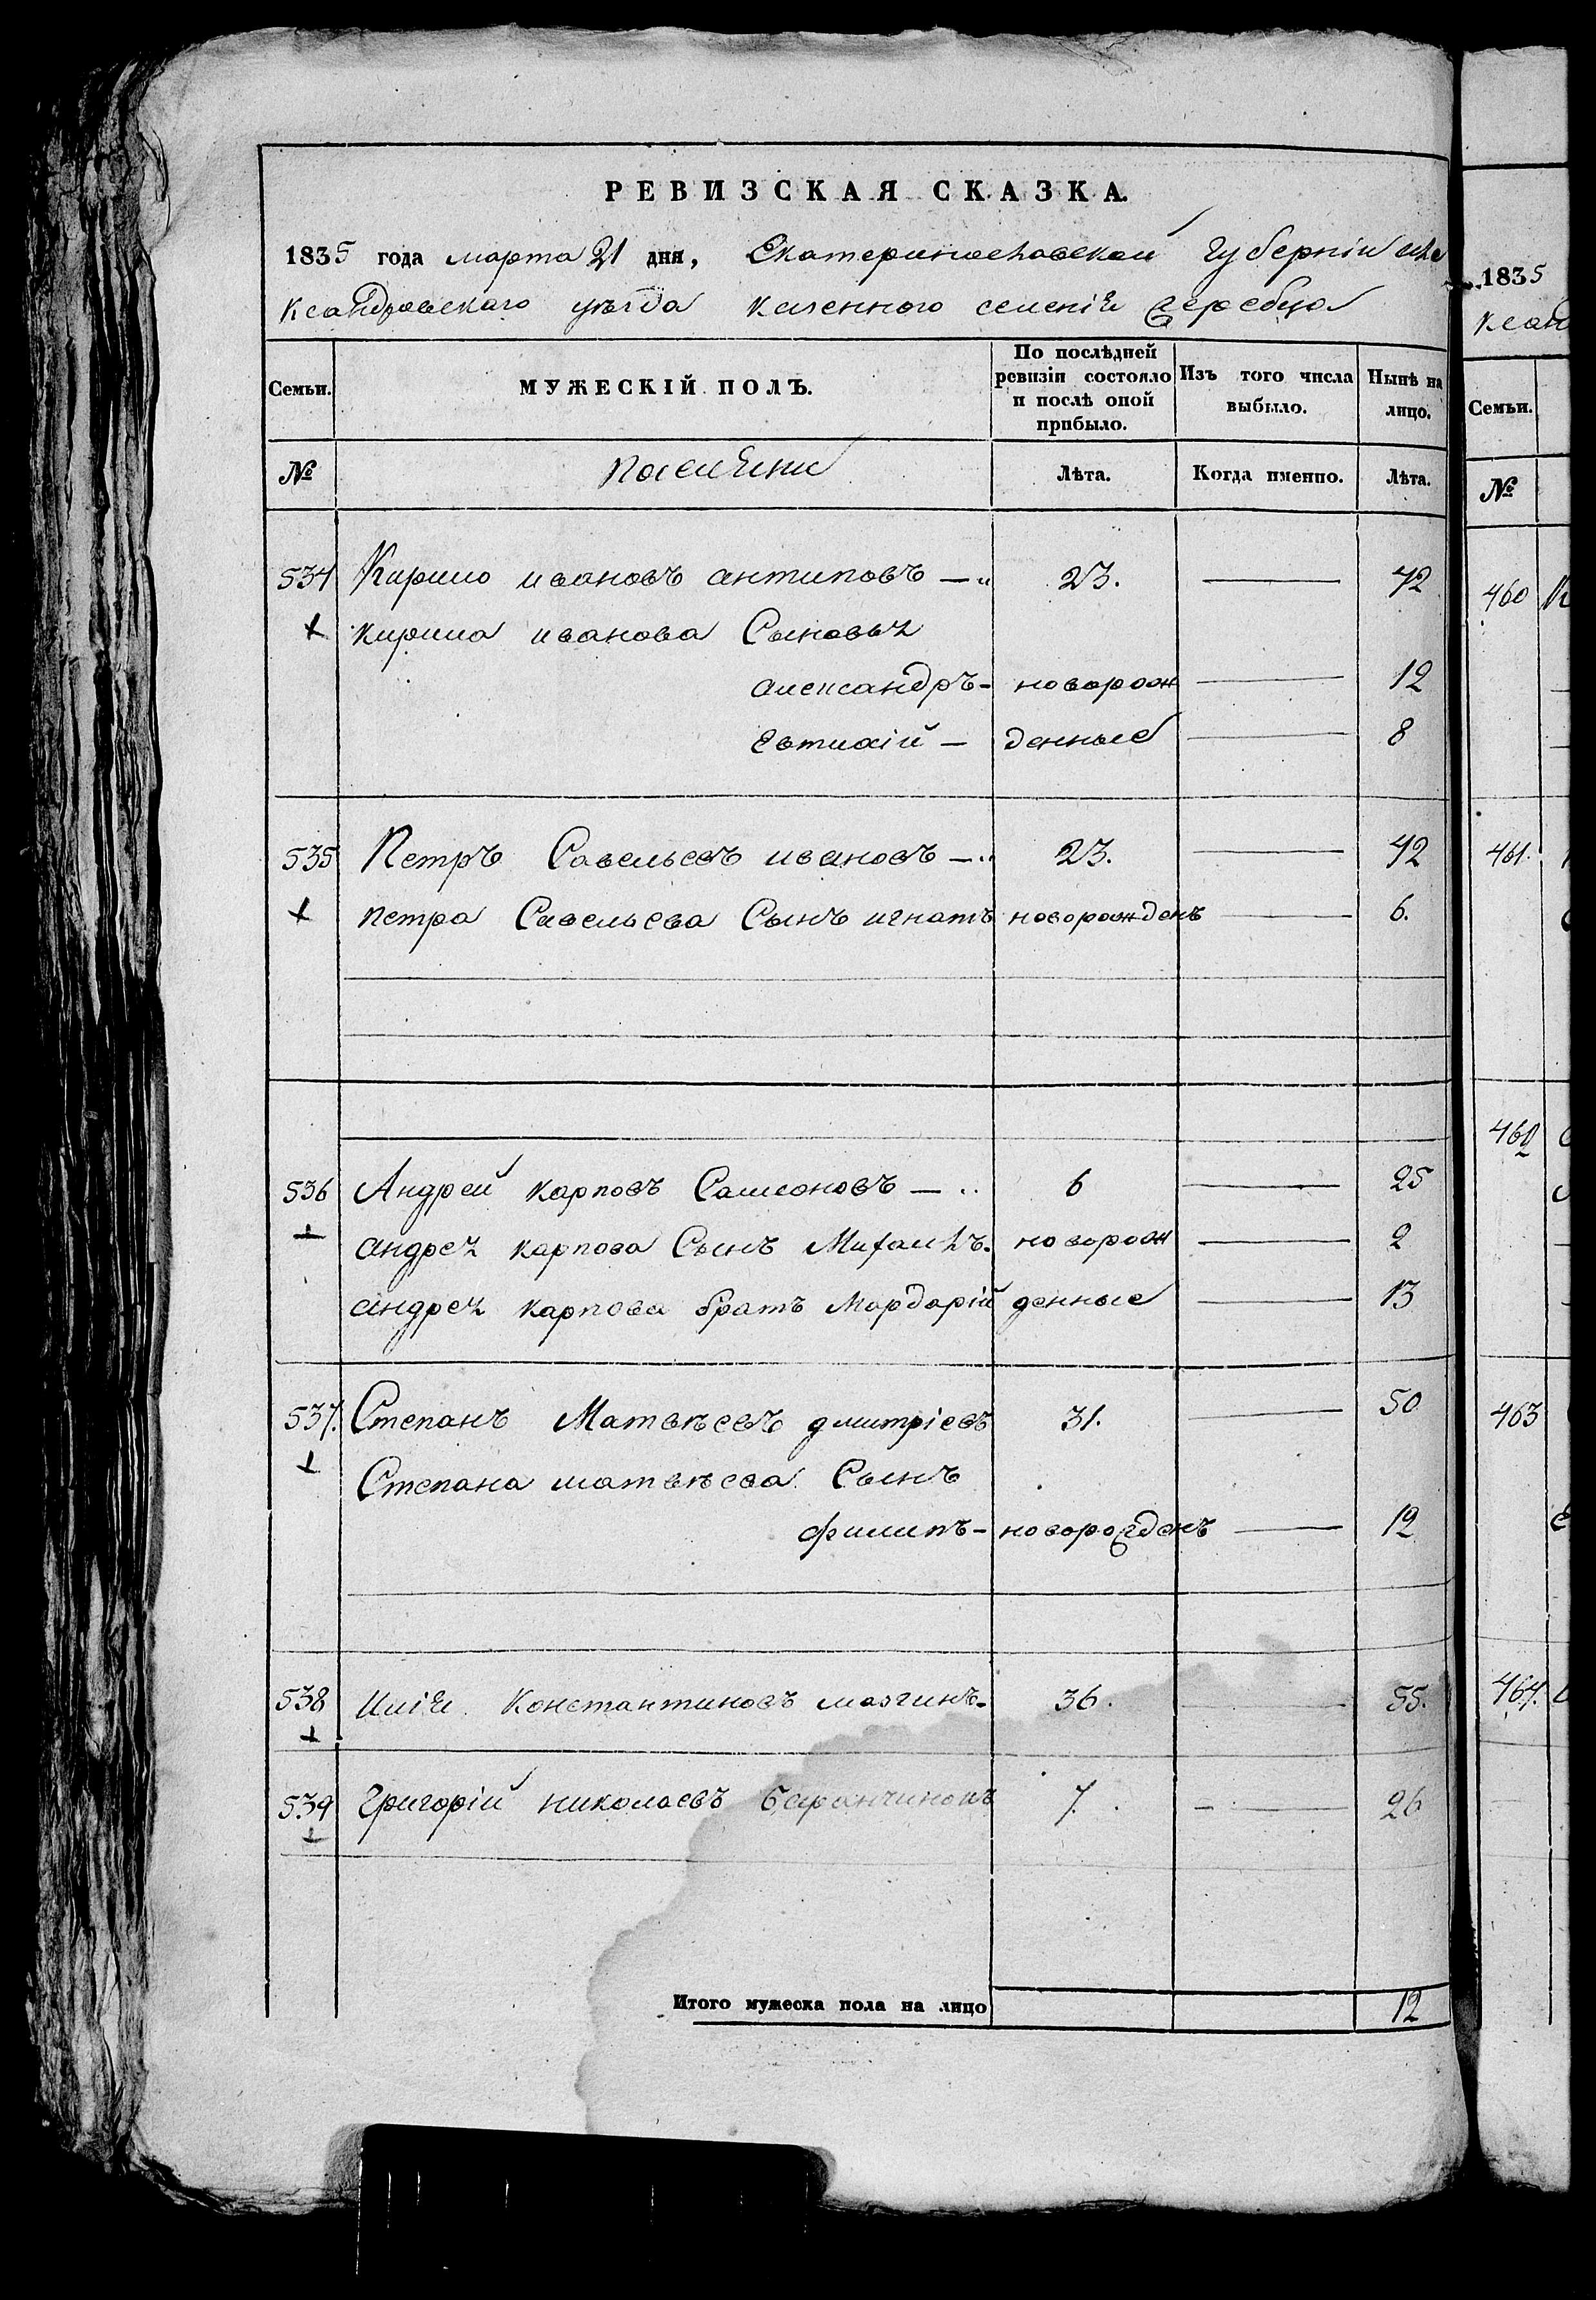 РЕВИЗСКАЯ СКАЗКА.
1835 года марта 21 дня, Екатеринославской Губерніи Але
ксандровскаго уѣзда казенного селенія Жеребца
Семьи. МУЖЕСКІЙ ПОЛЪ. По послѣдней ревизіи состояло и послѣ оной прибыло. Изъ того числа выбыло. Нынѣ на лицо.
№ поселяни Лѣта. Когда именно. Лѣта.
534 Кирило ивановъ антиповъ — 23. — 42
кирила иванова Сыновья
александръ - новорож — 12
евтихій — денные — 8
535 Петръ Савельевъ ивановъ — 23. — 42
петра Савельева Сынъ игнатъ новорожденъ — 6.
536 Андрей карповъ Самсоновъ — 6 — 25
андрея карпова Сынъ Михаилъ. новорож — 2
андрея карпова братъ Мардарій денные — 13
537. Степанъ Матвѣевъ дмитріевъ 31. — 50
Степана матвѣева Сынъ
филипъ - новорожденъ — 12
538 Илія Константиновъ 36. — 55.
539 Григорій николаевъ 7. — 26
Итого мужеска пола на лицо 12
1835
ксанд
Семьи.
№
460
461.
463
464.